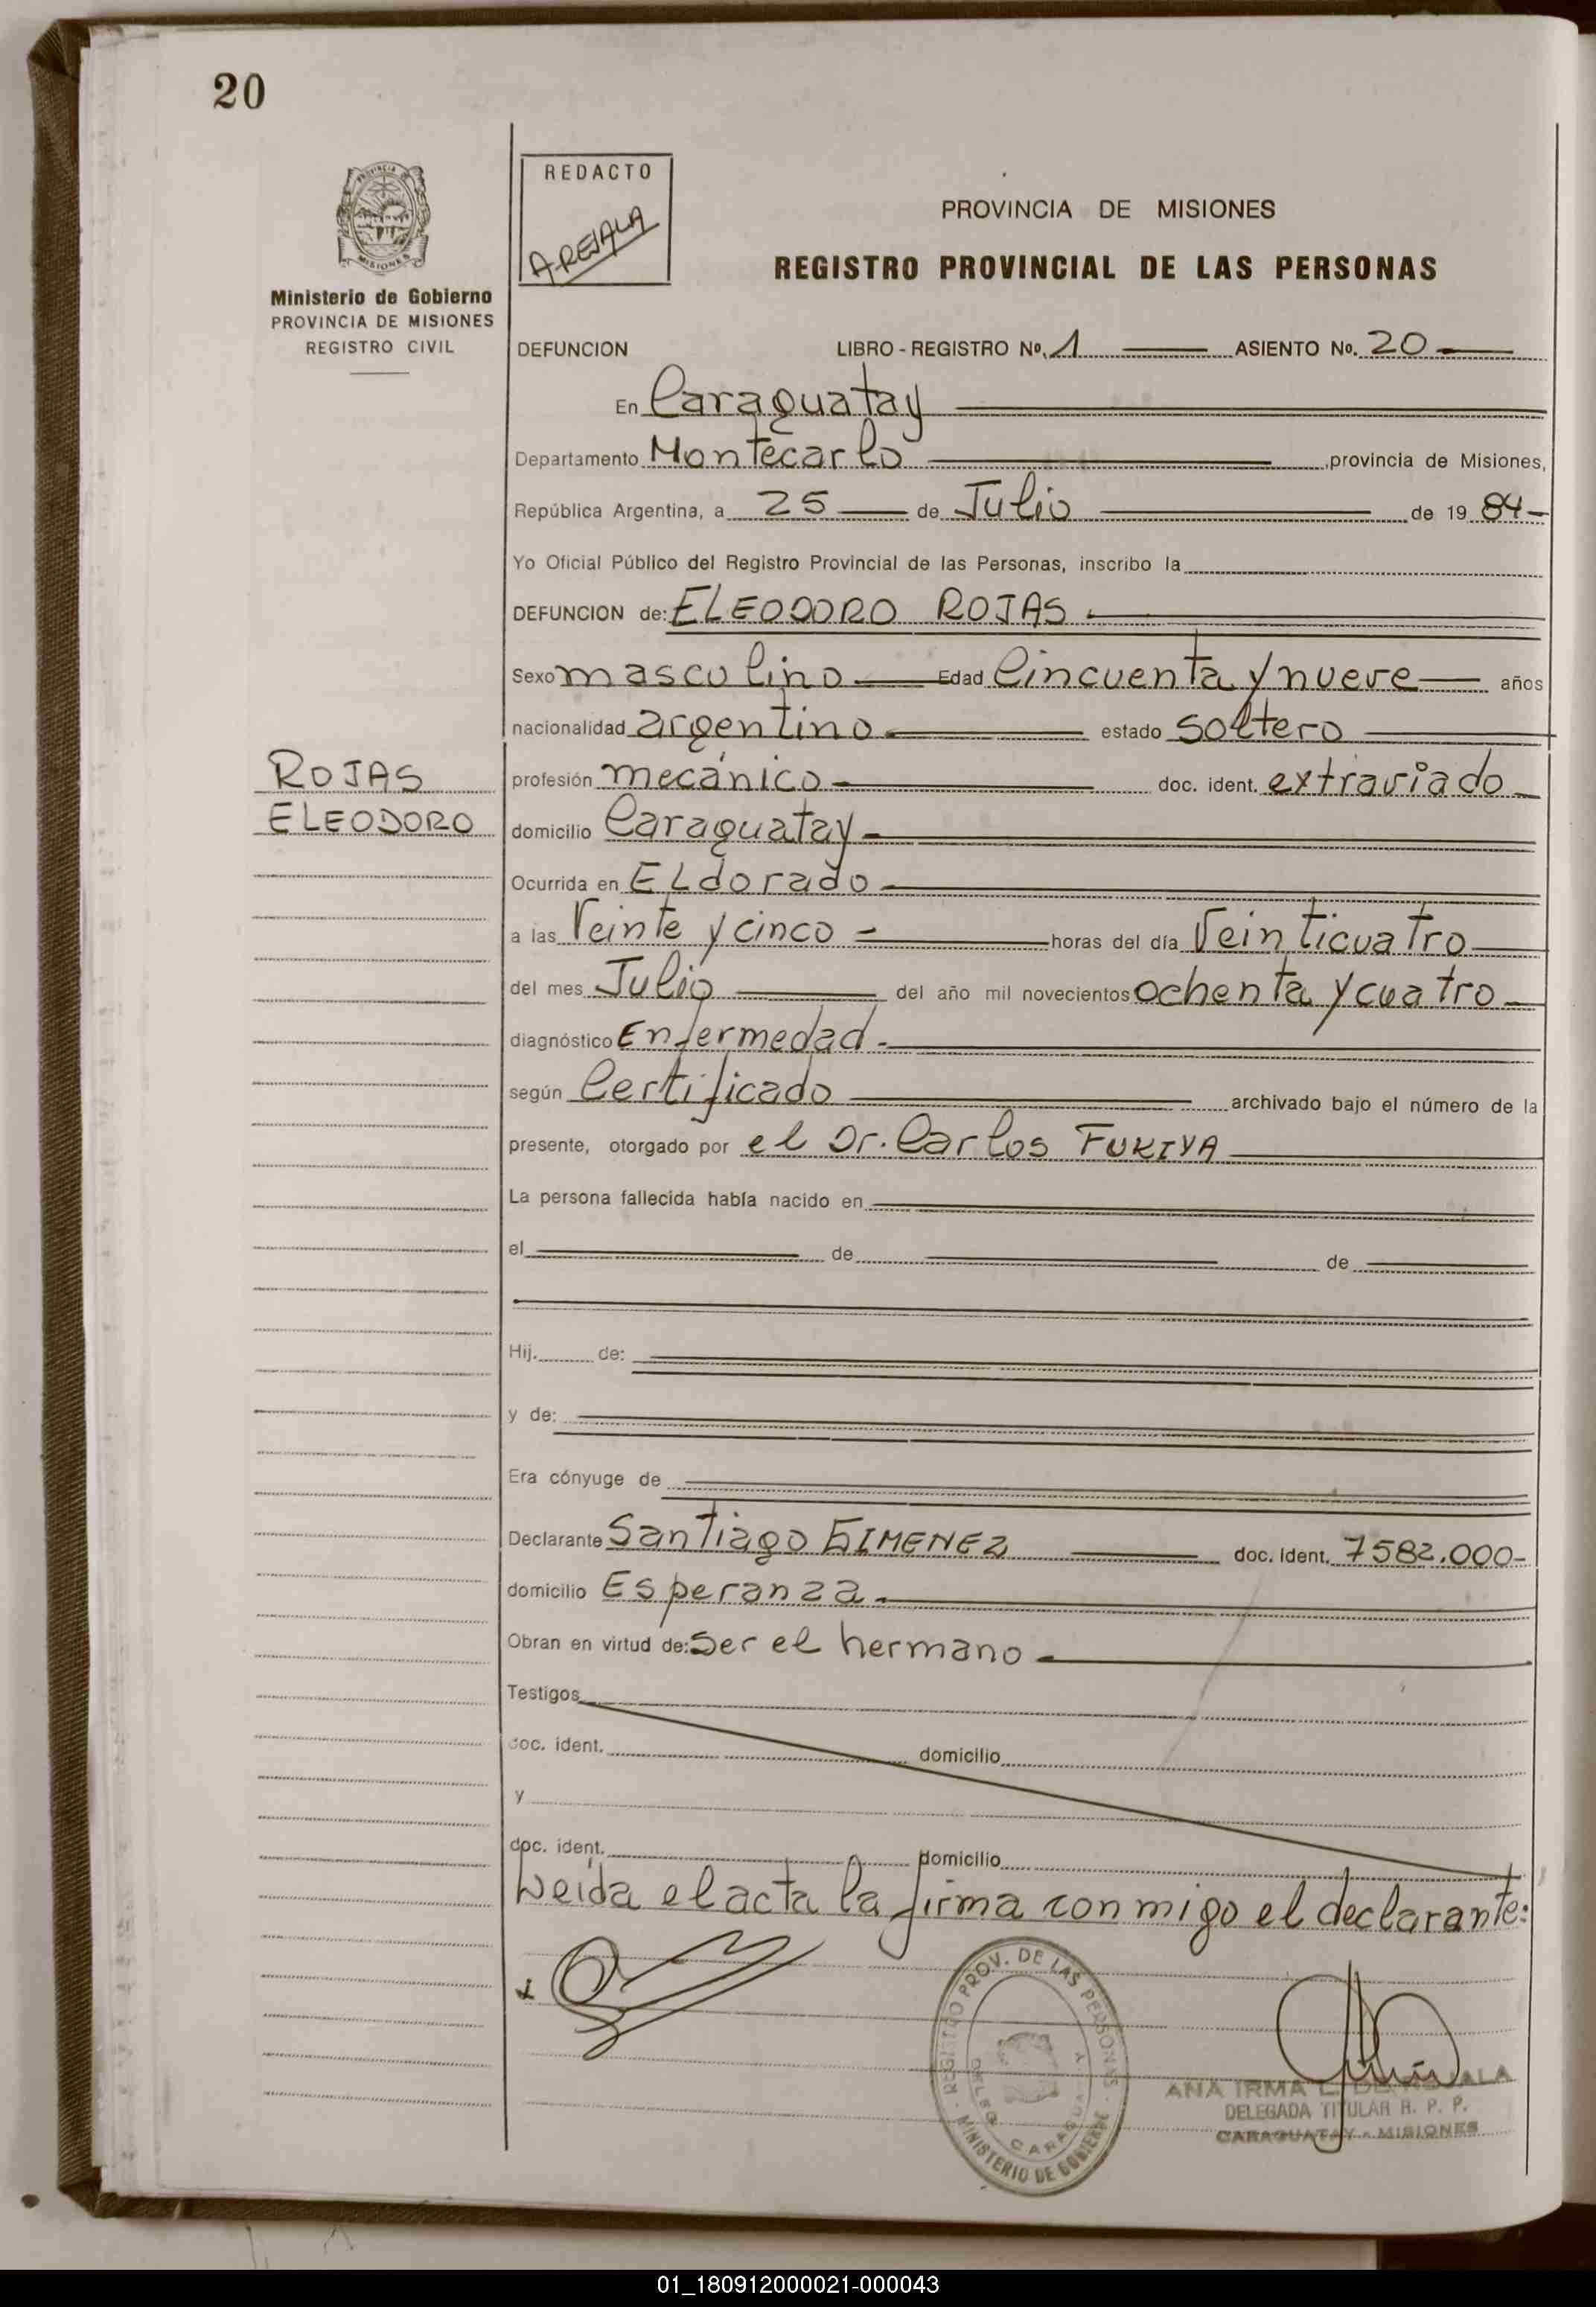 20
REDACTO
AREJALA
PROVINCIA DE MISIONES
REGISTRO PROVINCIAL DE LAS PERSONAS
PROVINCIA DE
MISIONES
Ministerio de Gobierno
PROVINCIA DE MISIONES
REGISTRO CIVIL
DEFUNCION LIBRO - REGISTRO Nº. 1 ASIENTO No. 20
En Caraguatay
Departamento Montecarlo ,provincia de Misiones,
República Argentina, a 25 de Julio de 19 84
Yo Oficial Público del Registro Provincial de las Personas, inscribo la
DEFUNCION de: ELEODORO ROJAS.
Sexo masculino Edad Cincuenta y nueve años
nacionalidad argentino estado soltero
ROJAS
ELEODORO
profesión mecánico doc. ident. extraviado
domicilio Caraguatay
Ocurrida en ELdorado
a las Veinte y cinco horas del día Veinticuatro
del mes Julio del año mil novecientos ochenta y cuatro
diagnóstico Enfermedad.
según Certificado archivado bajo el número de la
presente, otorgado por el Dr. Carlos FUKIYA
La persona fallecida había nacido en
el de de
Hij. de:
y de:
Era cónyuge de
Declarante Santiago GIMENEZ doc. Ident. 7582.000-
domicilio Esperanza.
Obran en virtud de: Ser el hermano
Testigos
doc. ident. domicilio
y
doc. ident. domicilio
Leída el acta la firma con migo el declarante:
REGISTRO PROV. DE LAS PERSONAS - MINISTERIO DE GOBIERNO
ANA IRMA
DELEGADA TITULAR R. P. P.
CARAGUATAY - MISIONES
01_180912000021-000043